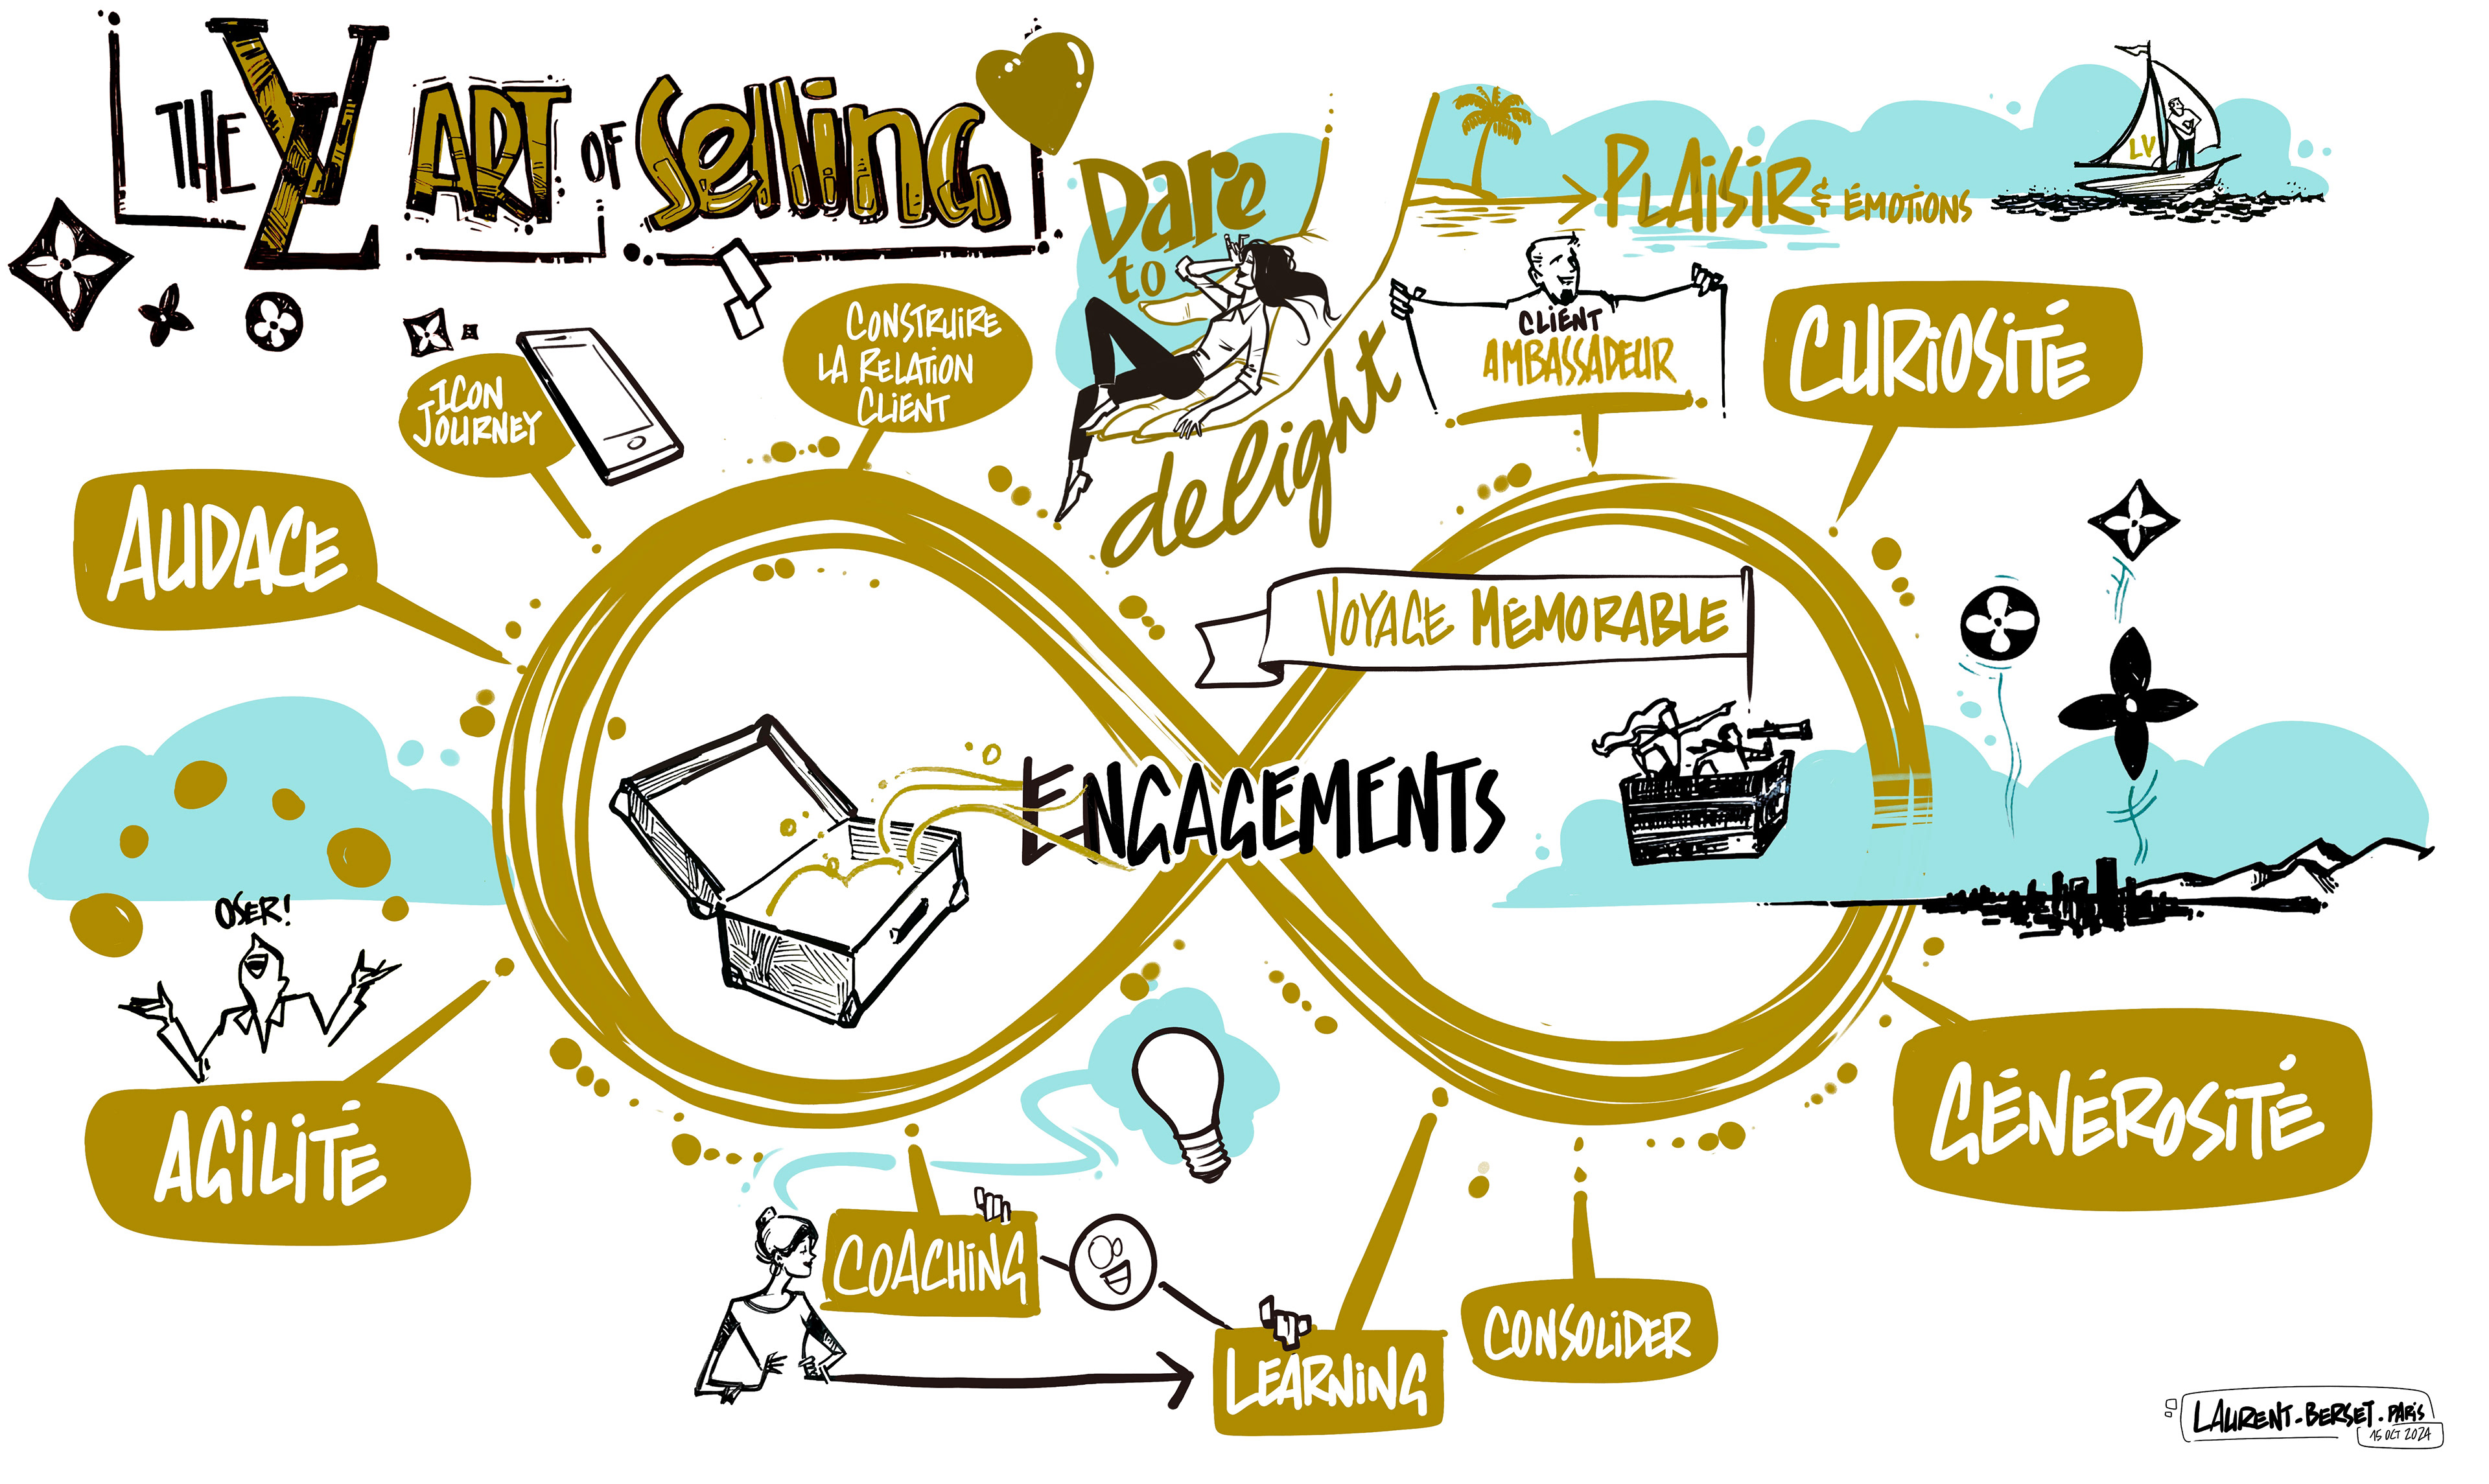 THE LV ART OF SELLING
Dare
to
delight
PLAISIR & ÉMOTIONS
LV
CLIENT
AMBASSADEUR
CURIOSITÉ
CONSTRUIRE
LA RELATION
CLIENT
ICON
JOURNEY
AUDACE
VOYAGE MÉMORABLE
ENGAGEMENTS
OSER!
AGILITÉ
GÉNÉROSITÉ
COACHING
LEARNING
CONSOLIDER
LAURENT-BERSET.PARIS
15 OCT 2024